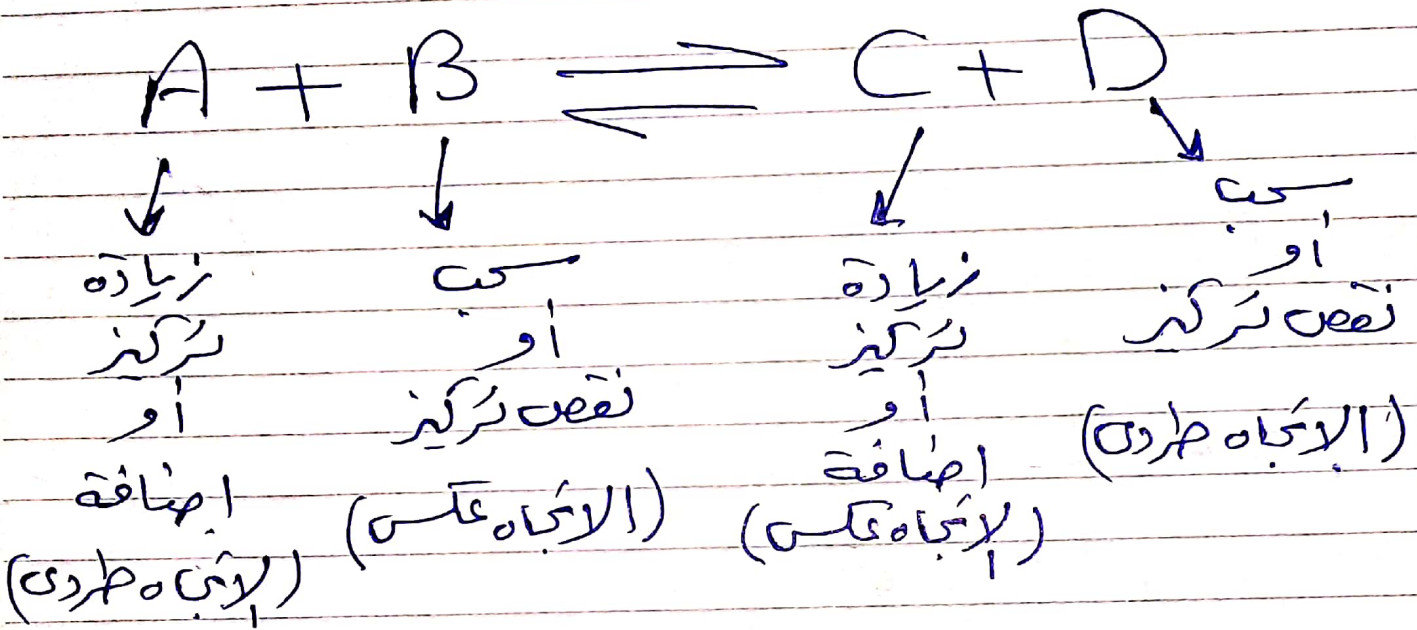 A + B ⇌ C + D
زيادة
تركيز
أو
اضافة
(الاتجاه طردى)
سحب
أو
نقص تركيز
(الاتجاه عكسى)
زيادة
تركيز
أو
اضافة
(الاتجاه عكسى)
سحب
أو
نقص تركيز
(الاتجاه طردى)